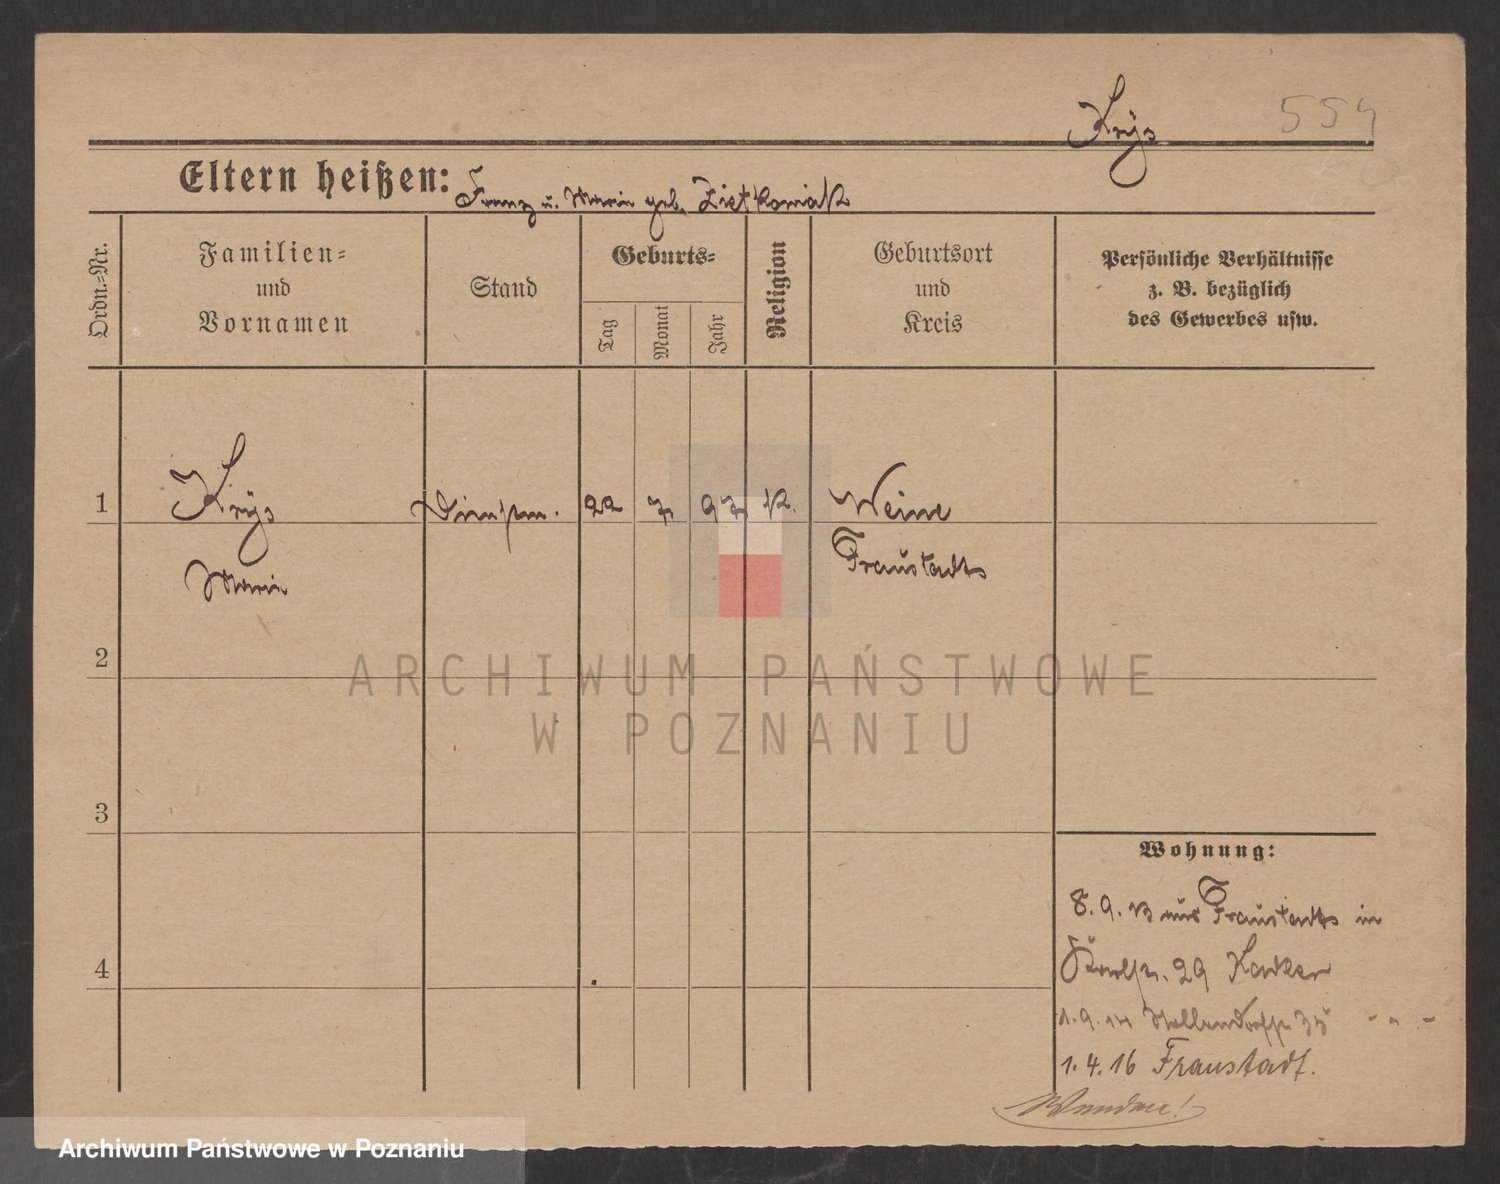 Krÿs 554
Eltern heißen: Franz u. Marie geb. Zietkowiak
Ordn.-Nr.
Familien-
und
Vornamen
Stand
Geburts-
Tag
Monat
Jahr
Religion
Geburtsort
und
Kreis
Persönliche Verhältnisse
z. B. bezüglich
des Gewerbes usw.
1 Krÿs 22 7 97 K. Weine
Marie Fraustadt
2
ARCHIWUM PAŃSTWOWE
W POZNANIU
3
Wohnung:
8.9.13 aus Fraustadt in
29
4
1.9.14 - " -
1.4.16 Fraustadt.
Wenden!
Archiwum Państwowe w Poznaniu